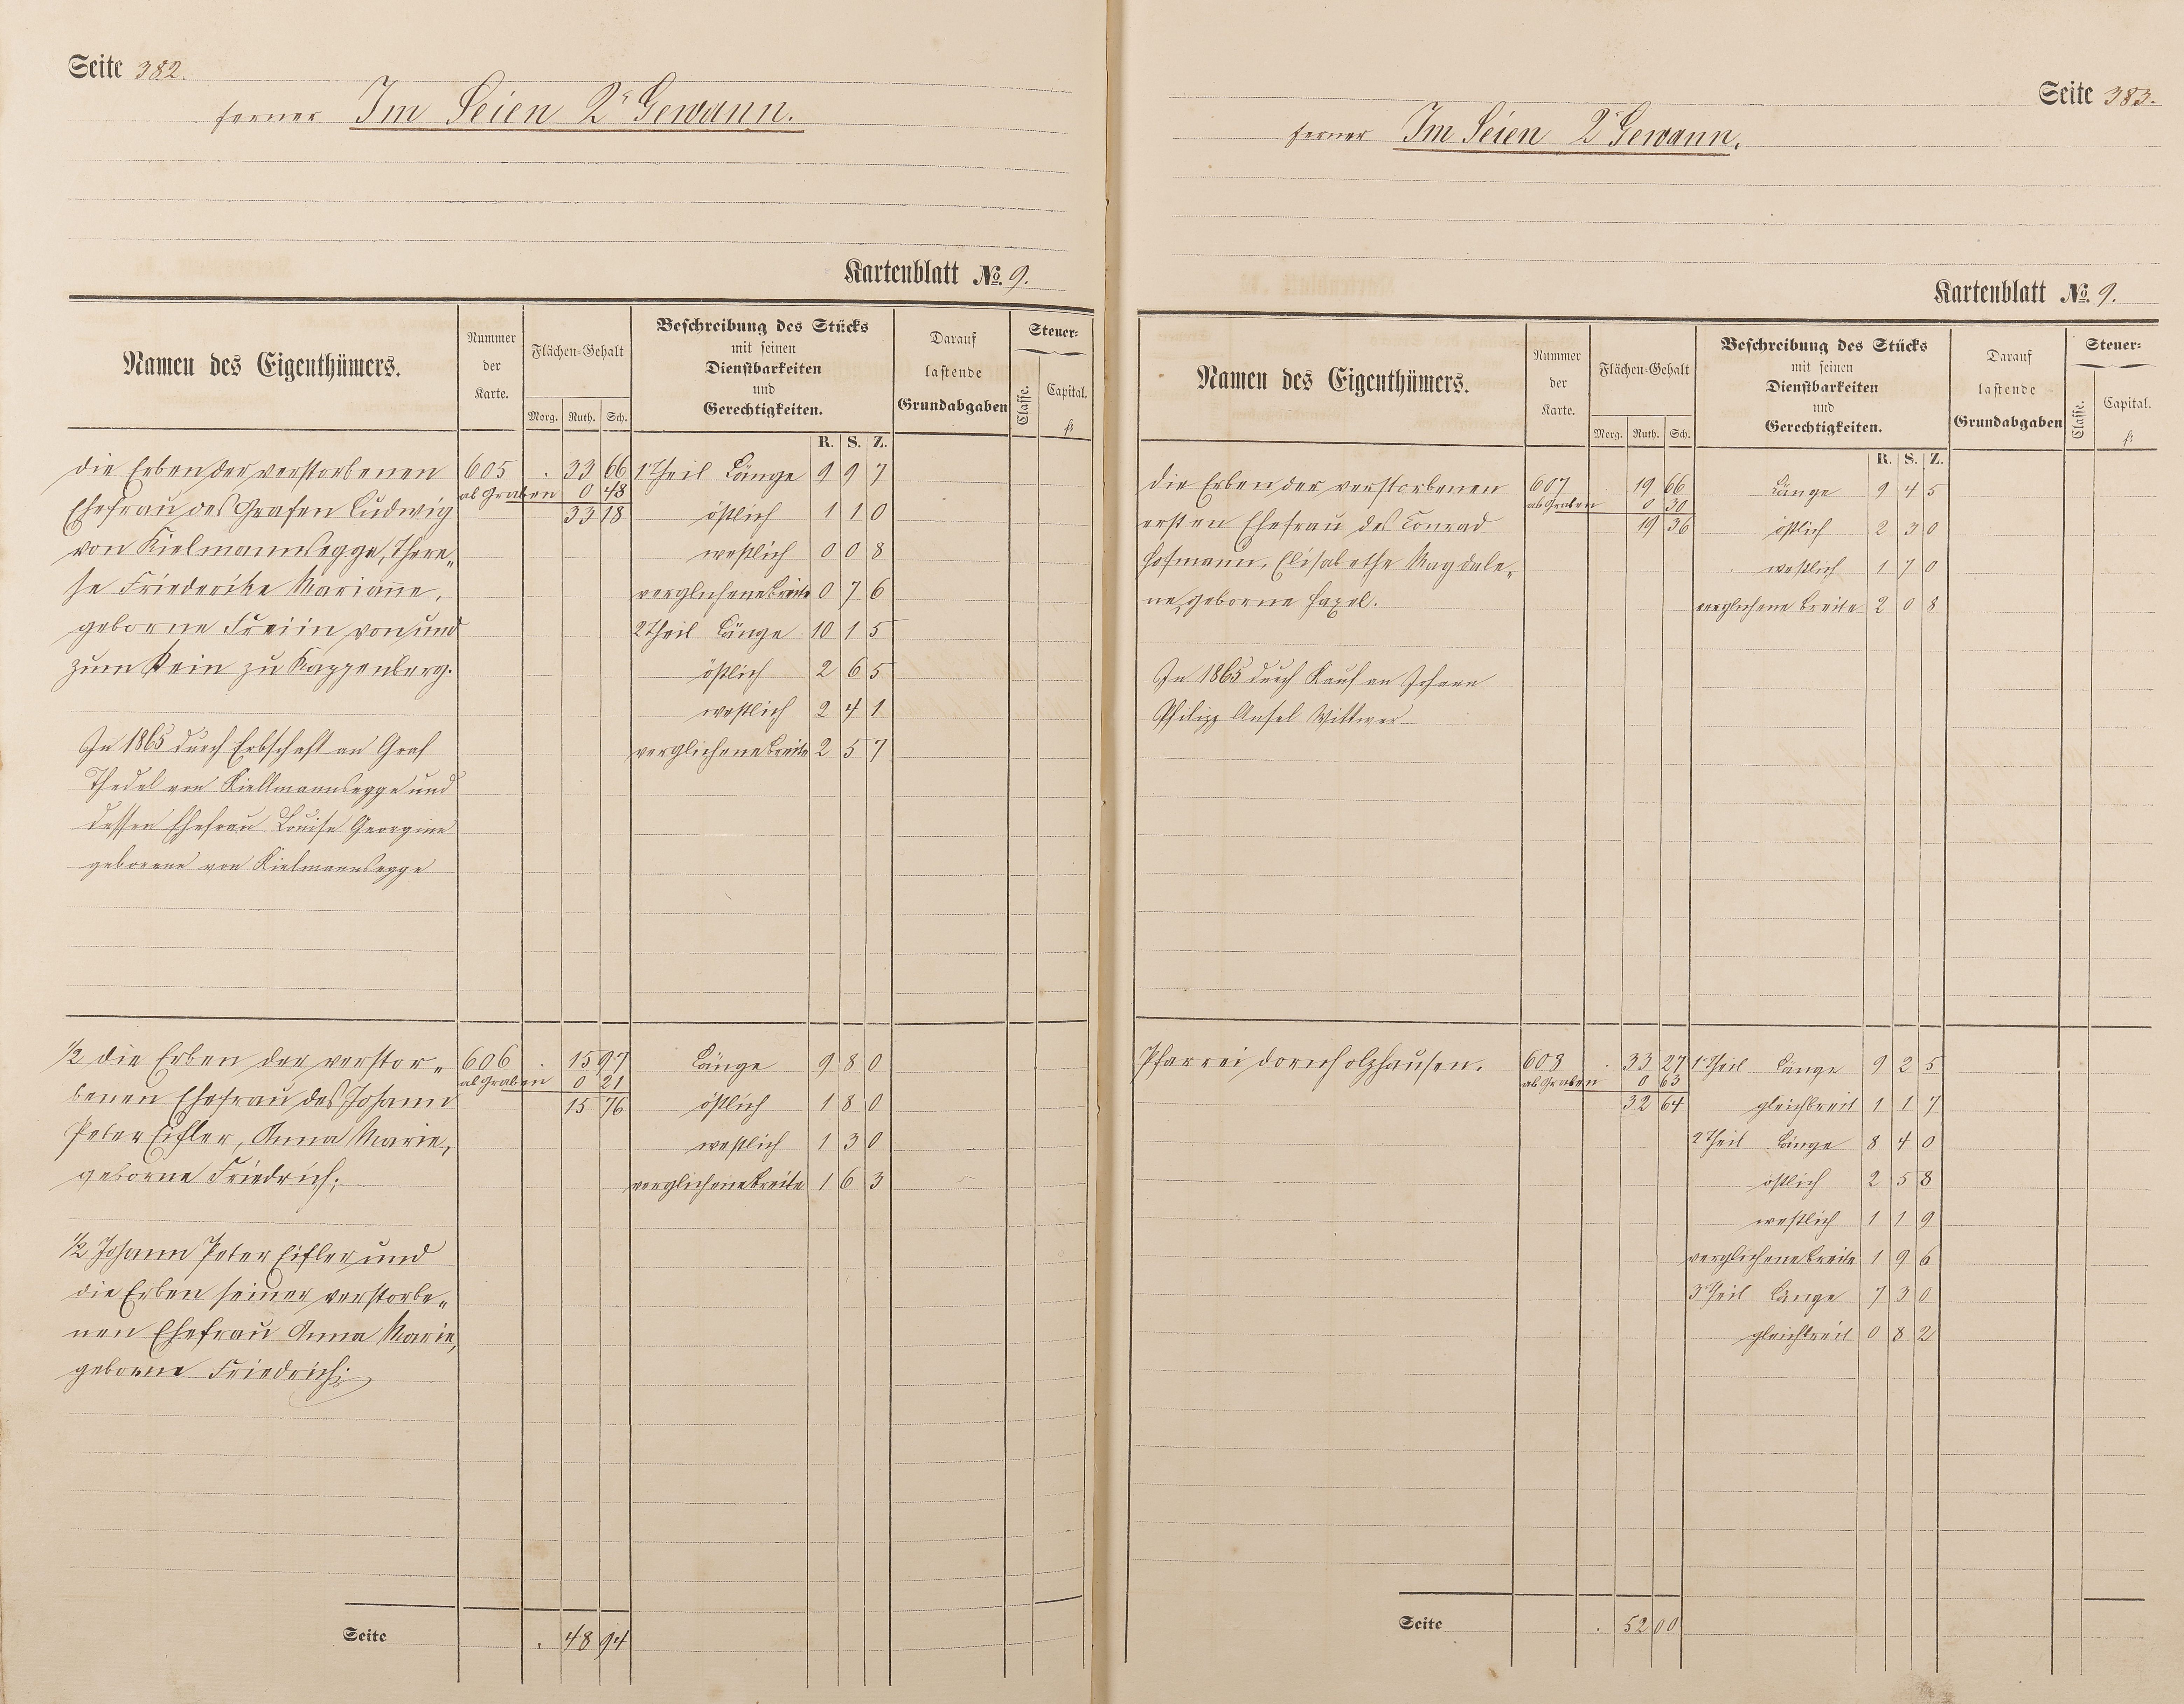 Seite 382.
ferner Im Seien 2r Gewann.
Kartenblatt No. 9.
Namen des Eigenthümers.
Nummer der Karte.
Flächen-Gehalt
Morg. Ruth. Sch.
Beschreibung des Stücks
mit seinen
Dienstbarkeiten
und
Gerechtigkeiten.
R. S. Z.
Darauf
lastende
Grundabgaben
Steuer:
Classe.
Capital.
fl
die Erben der verstorbenen 605 . 33 66 1r Theil Länge 9 9 7
ab Graben 0 48
Ehefrau des Grafen Ludwig 33 18 östlich 1 1 0
von Kielmannsegge, There„ westlich 0 0 8
se Friederike Marianne, verglichene Breite 0 7 6
geborne Freiin von und 2 Theil Länge 10 1 5
zum Stein zu Kappenberg. östlich 2 6 5
westlich 2 4 1
In 1865 durch Erbschaft an Graf verglichene Breite 2 5 7
Thedel von Kiellmannsegge und
dessen Ehefrau Louise Georgine
geborene von Kielmannsegge
1/2 die Erben der verstor„ 606 . 15 97 Länge 9 8 0
ab Graben 0 21
benen Ehefrau des Johann 15 76 östlich 1 8 0
Peter Eifler, Anna Marie, westlich 1 3 0
geborne Friedrich; verglichene Breite 1 6 3
1/2 Johann Peter Eifler und
die Erben seiner verstorbe„
nen Ehefrau Anna Marie,
geborne Friedrich;
Seite . 48 94
Seite 383.
ferner Im Seien 2r Gewann.
Kartenblatt No. 9.
Namen des Eigenthümers.
Nummer der Karte.
Flächen-Gehalt
Morg. Ruth. Sch.
Beschreibung des Stücks
mit seinen
Dienstbarkeiten
und
Gerechtigkeiten.
R. S. Z.
Darauf
lastende
Grundabgaben
Steuer:
Classe.
Capital.
fl
die Erben der verstorbenen 607 19 66 Länge 9 4 5
ab Graben 0 30
ersten Ehefrau des Conrad 19 36 östlich 2 3 0
Hofmann, Elisabethe Magdale„ westlich 1 7 0
ne, geborne Haxel. verglichene Breite 2 0 8
In 1865 durch Kauf an Johann
Philipp Ansel Wittwer
Pfarrei dornholzhausen. 608 . 33 27 1r Theil Länge 9 2 5
ab Graben 0 63
32 64 gleichbreit 1 1 7
2 Theil Länge 8 4 0
östlich 2 5 8
westlich 1 1 9
verglichene Breite 1 9 6
3r Theil Länge 7 3 0
gleichbreit 0 8 2
Seite . 52 00